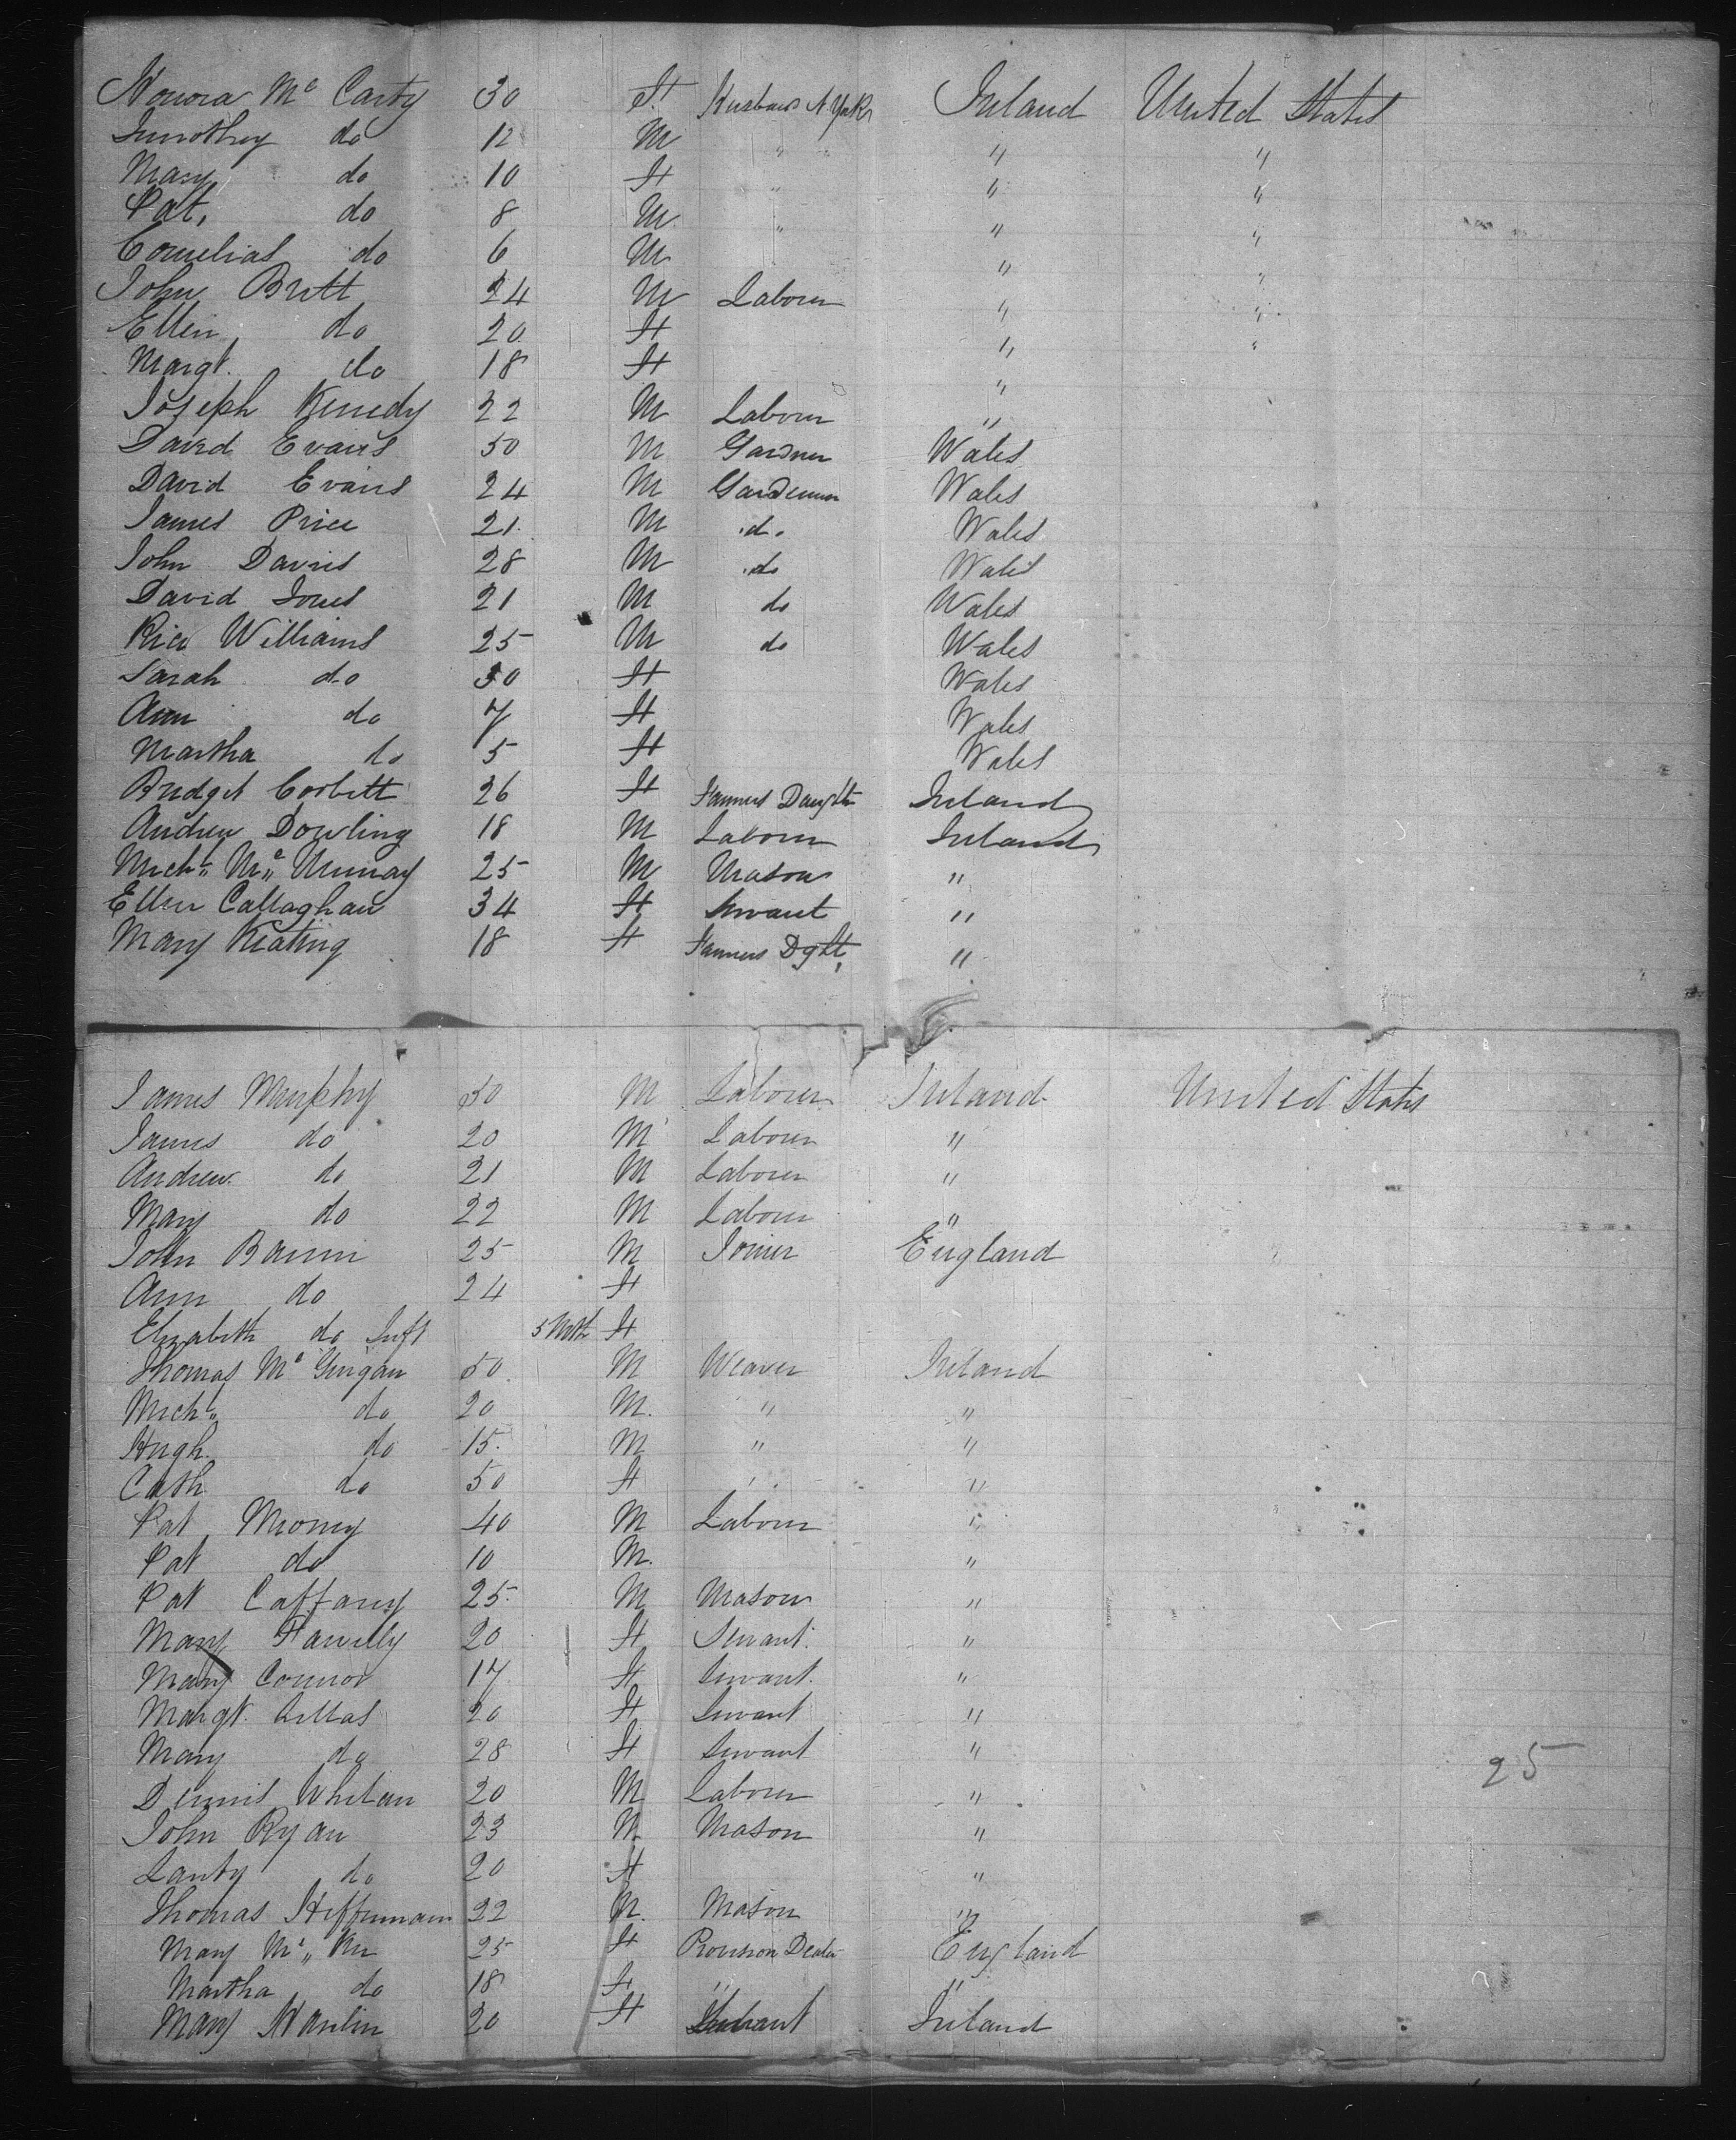 Honora Mc Carty 30 F Husband N York Ireland United States
Timothey do 12 M " " " "
Mary do 10 F " " "
Pat, do 8 M " " "
Cornelias do 6 M " "
John Brett 24 M Labourer " "
Ellen do 20 F " "
Margt. do 18 F "
Joseph Kennedy 22 M Labourer "
David Evans 50 M Gardner Wales
David Evans 24 M Gardenner Wales
James Price 21 M do Wales
John Davies 28 M do Wales
David Jones 21 M do Wales
Rice Williams 25 M do Wales
Sarah do 30 F Wales
Ann do 7 F Wales
Martha do 5 F Wales
Bridget Corbett 26 F Farmers Daughter Ireland
Andrew Dowling 18 M Labourer Ireland
Michl. Mc Murray 25 M Mason "
Ellen Callaghan 34 F Servant "
Mary Keating 18 F Farmers Dght, "
James Murphy 50 M Labourer Ireland United States
James do 20 M Labourer "
Andrew do 21 M Labourer "
Mary do 22 M Labourer "
John 25 M Joiner England
Ann do 24 F
Elizabeth do Inft 5 Mth F
Thomas Mc Guigan 50 M Weaver Ireland
Michl. do 20 M. " "
Hugh do 15 M " "
Cath do 50 F " "
Pat 40 M Labourer "
Pat do 10 M. "
Pat Caffarey 25 M Mason "
Mary 20 F Servant "
Mary Connor 17 F Servant "
Margt. 20 F Servant "
Mary do 28 F Servant "
25
Dennis Whelan 20 M Labourer "
John Ryan 23 M Mason "
Lanty do 20 F "
Thomas Heffernan 22 M. Mason "
Mary Mc 25 F Provision Dealer England
Martha do 18 F " "
Mary Hanlin 20 F Servant Ireland